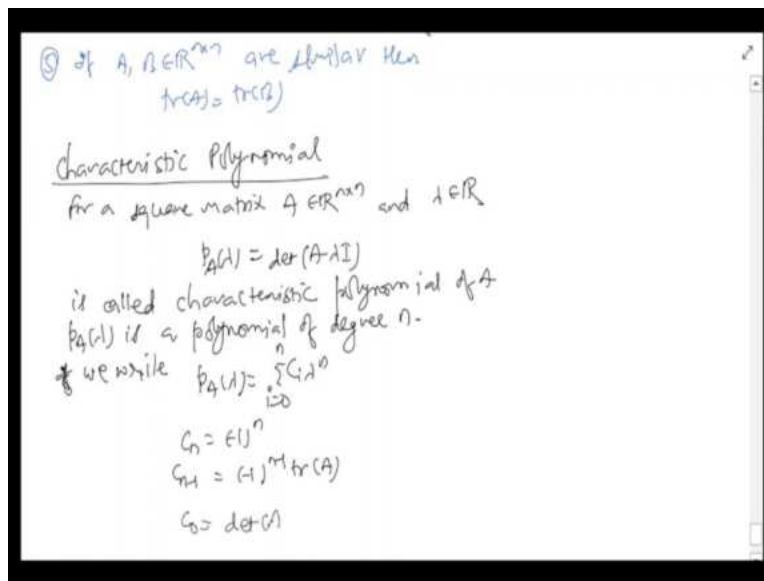 ⑤ If A, B ∈ ℝ^{n×n} are similar then
tr(A) = tr(B)
Characteristic Polynomial
For a square matrix A ∈ ℝ^{n×n} and λ ∈ ℝ
p_A(λ) = det(A-λI)
is called characteristic polynomial of A
p_A(λ) is a polynomial of degree n.
If we write p_A(λ) = ∑_{i=0}^{n} C_i λ^n
C_n = (-1)^n
C_{n-1} = (-1)^{n-1} tr(A)
C_0 = det(A)